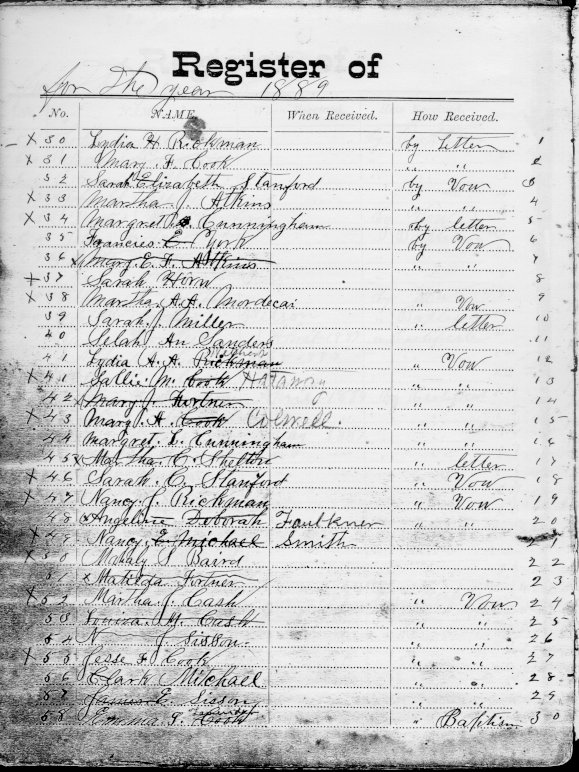 Register of
for the year 1889
No. NAME. When Received. How Received.
x 30 Lydia H Rickman by letter 1
x 31 Mary F. Cook " " 2
32 Sarah Elizabeth Stanford by Vow 3
x 33 Martha J. Atkins " " 4
x 34 Margret Cunningham by letter 5
35 Francies E. York by Vow 6
36 x Mary E. F. Atkins " " 7
x 37 Sarah Horn 8
x 38 Martha A. A. Mordecai " Vow 9
39 Sarah J. Miller " letter 10
40 Selah An Sanders 11
41 Lydia A. A. Rickman " Vow 12
x 41 Sallie M. Cook Hataway " " 13
42 x Mary J. Fortner " " 14
x 43 Mary A Cook Colwell. " " 15
44 Margret L. Cunningham " " 16
45 x Martha C. Shelton " letter 17
x 46 Sarah C. Stanford " Vow 18
x 47 Nancy J. Rickman " Vow 19
48 x Angeline Deborah Faulkner " " 20
x 49 Nancy E Michael Smith 21
x 50 Mahaly J Baird 22
51 x Matilda Fortner 23
x 52 Martha J. Cash " Vow 24
53 Louiza M. Cash " " 25
54 N J Sisson " " 26
x 55 Jesse F Cook " " 27
56 Clark Michael " " 28
57 James E. Sisson " " 29
58 Emma T. Cook " Baptism 30